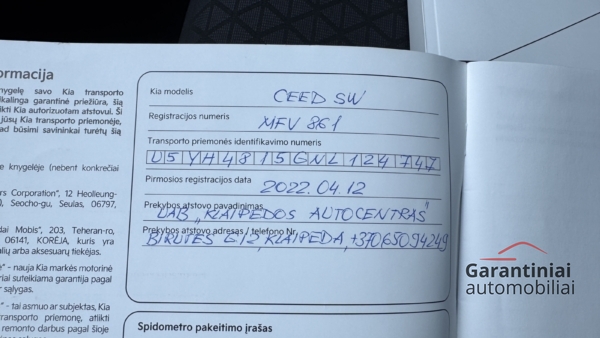 ormacija
nygelę savo Kia transporto
ikalinga garantinė priežiūra, šią
ikti Kia autorizuotam atstovui. Ši
jūsų Kia transporto priemonėje,
ad būsimi savininkai turėtų šią
e knygelėje (nebent konkrečiai
rs Corporation", 12 Heolleung-
), Seocho-gu, Seulas, 06797,
dai Mobis", 203, Teheran-ro,
06141, KORĖJA, kuris yra
alių arba aksesuarų tiekėjas.
e" – nauja Kia markės motorinė
riai suteikiama garantija pagal
r sąlygas.
" – tai asmuo ar subjektas, Kia
transporto priemonę, atlikti
remonto darbus pagal šioje
Kia modelis CEED SW
Registracijos numeris MFV 861
Transporto priemonės identifikavimo numeris
U5YH4815GNL124747
Pirmosios registracijos data 2022.04.12
Prekybos atstovo pavadinimas
UAB „KLAIPĖDOS AUTOCENTRAS"
Prekybos atstovo adresas / telefono Nr.
BIRUTĖS G.12, KLAIPĖDA, +37065094249
Spidometro pakeitimo įrašas
Garantiniai
automobiliai